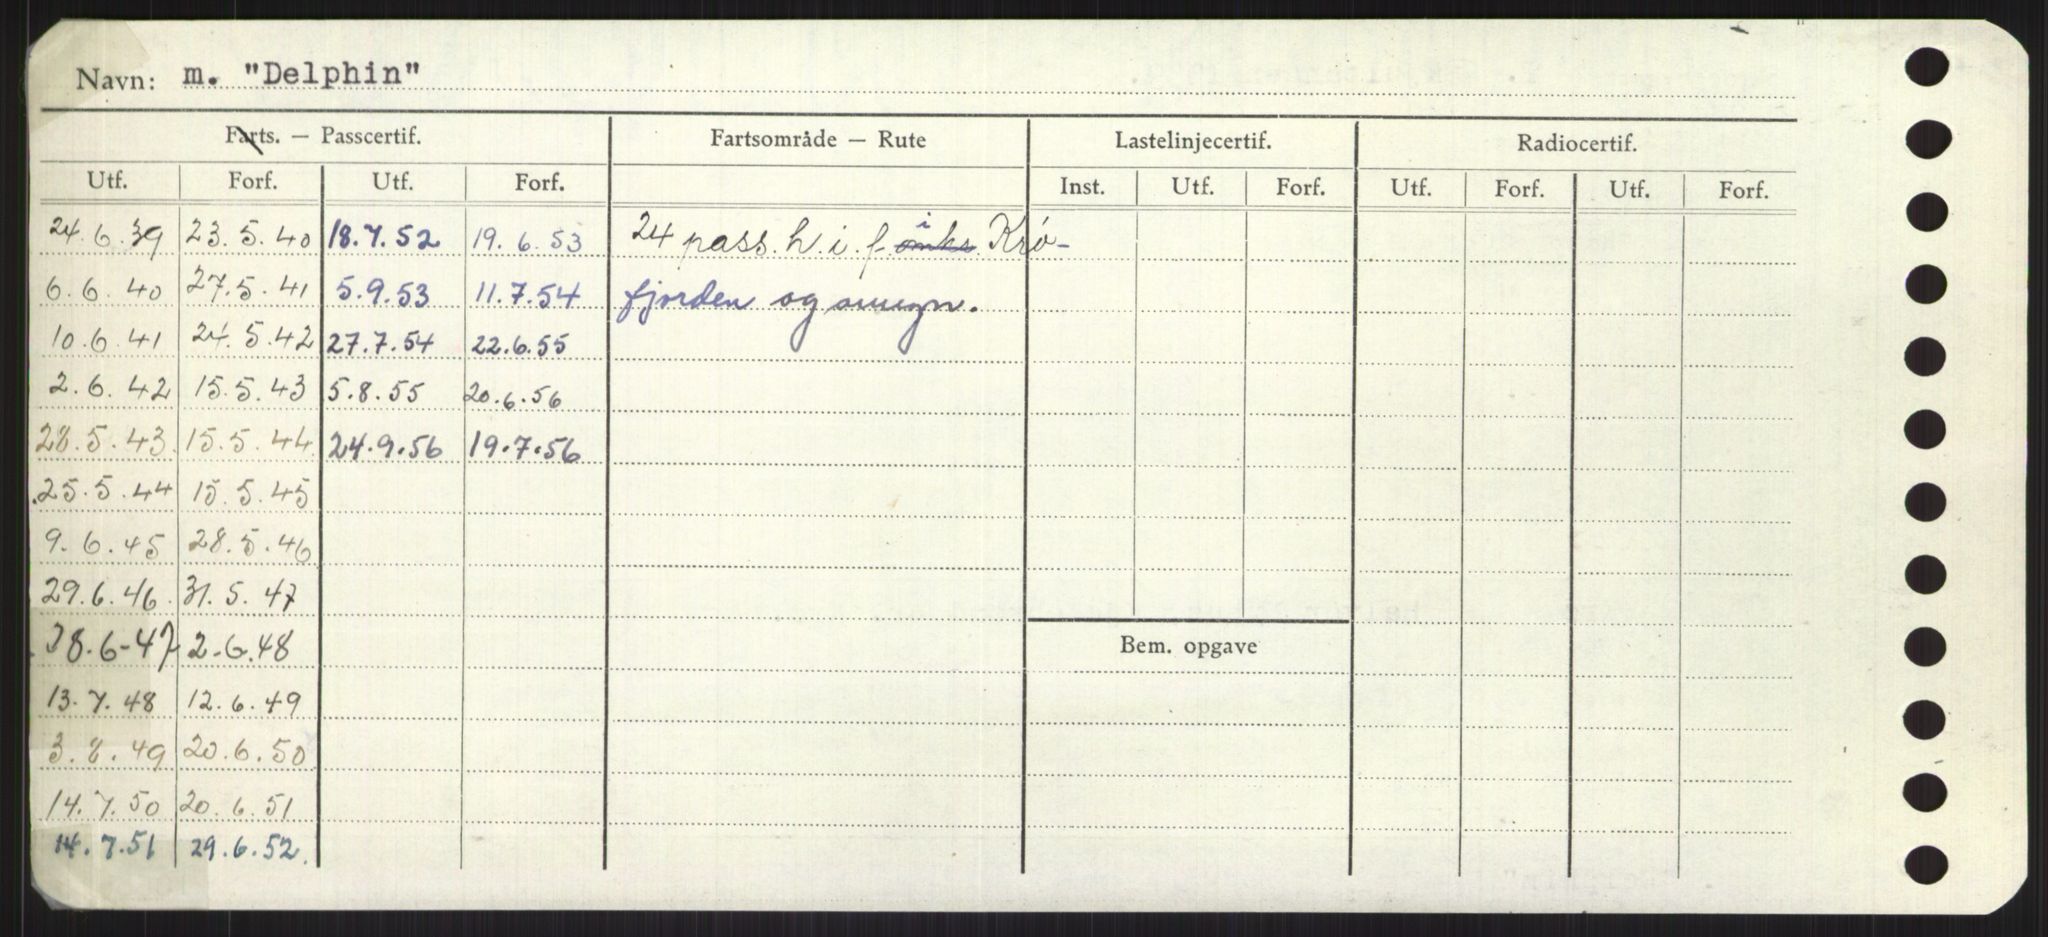 Navn: m. "Delphin"
Farts. — Passcertif. Fartsområde — Rute Lastelinjecertif. Radiocertif.
Utf. Forf. Utf. Forf. Inst. Utf. Forf. Utf. Forf. Utf. Forf.
24.6.39 23.5.40 18.7.52 19.6.53 24 pass. h. i f. i Krø-
6.6.40 27.5.41 5.9.53 11.7.54 fjorden og omegn.
10.6.41 24.5.42 27.7.54 22.6.55
2.6.42 15.5.43 5.8.55 20.6.56
28.5.43 15.5.44 24.9.56 19.7.56
25.5.44 15.5.45
9.6.45 28.5.46
29.6.46 31.5.47
8.6-47 2.6.48
Bem. opgave
13.7.48 12.6.49
3.8.49 20.6.50
14.7.50 20.6.51
14.7.51 29.6.52.